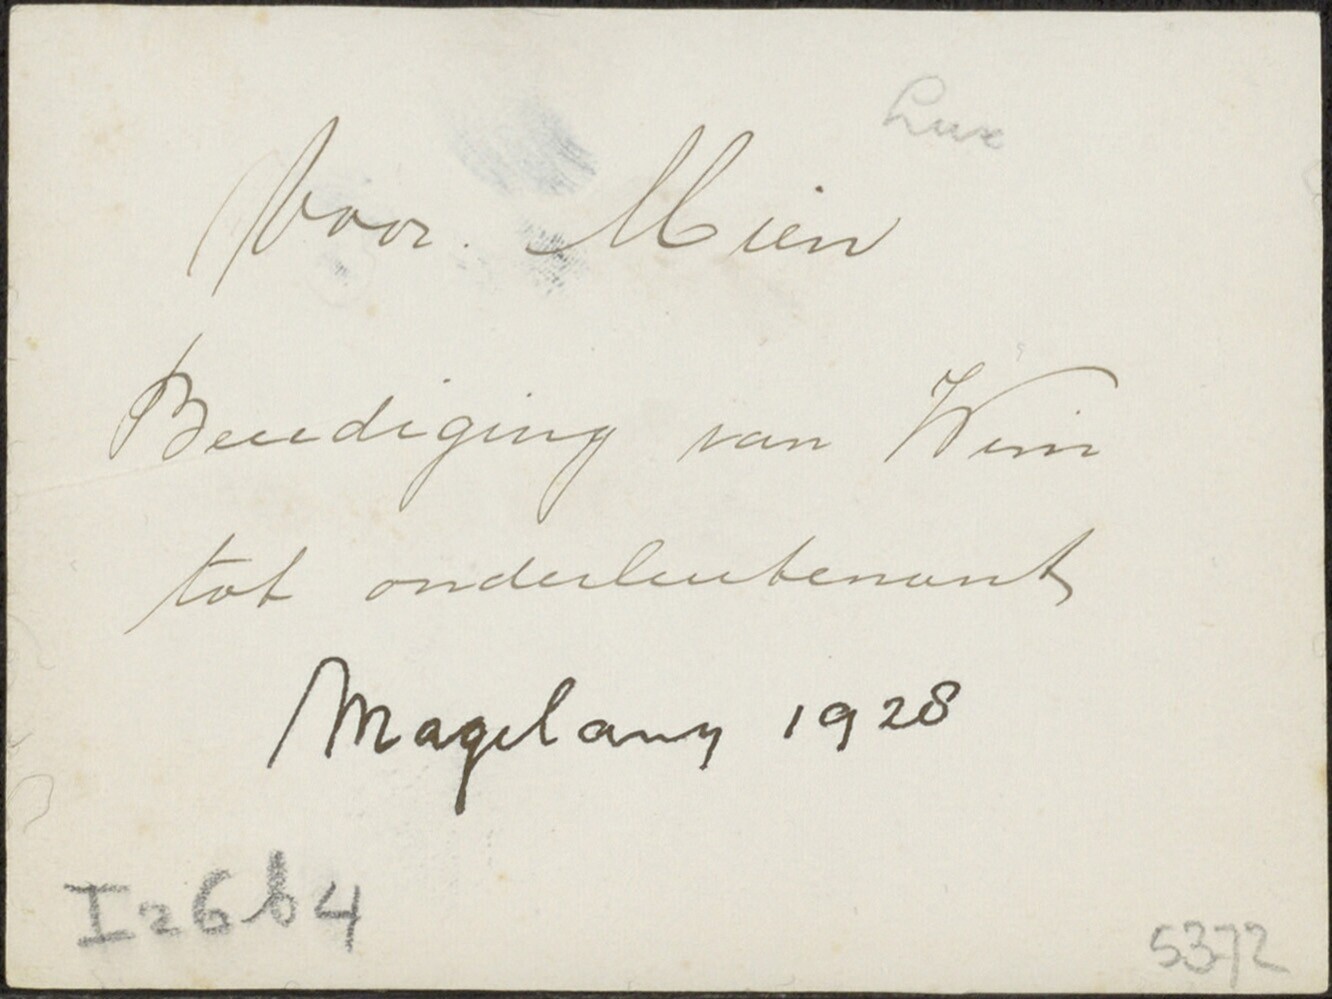 Lux
Voor Mien
Beeediging van Wim
tot onderleutenant
Magelang 1928
I26b4
5372